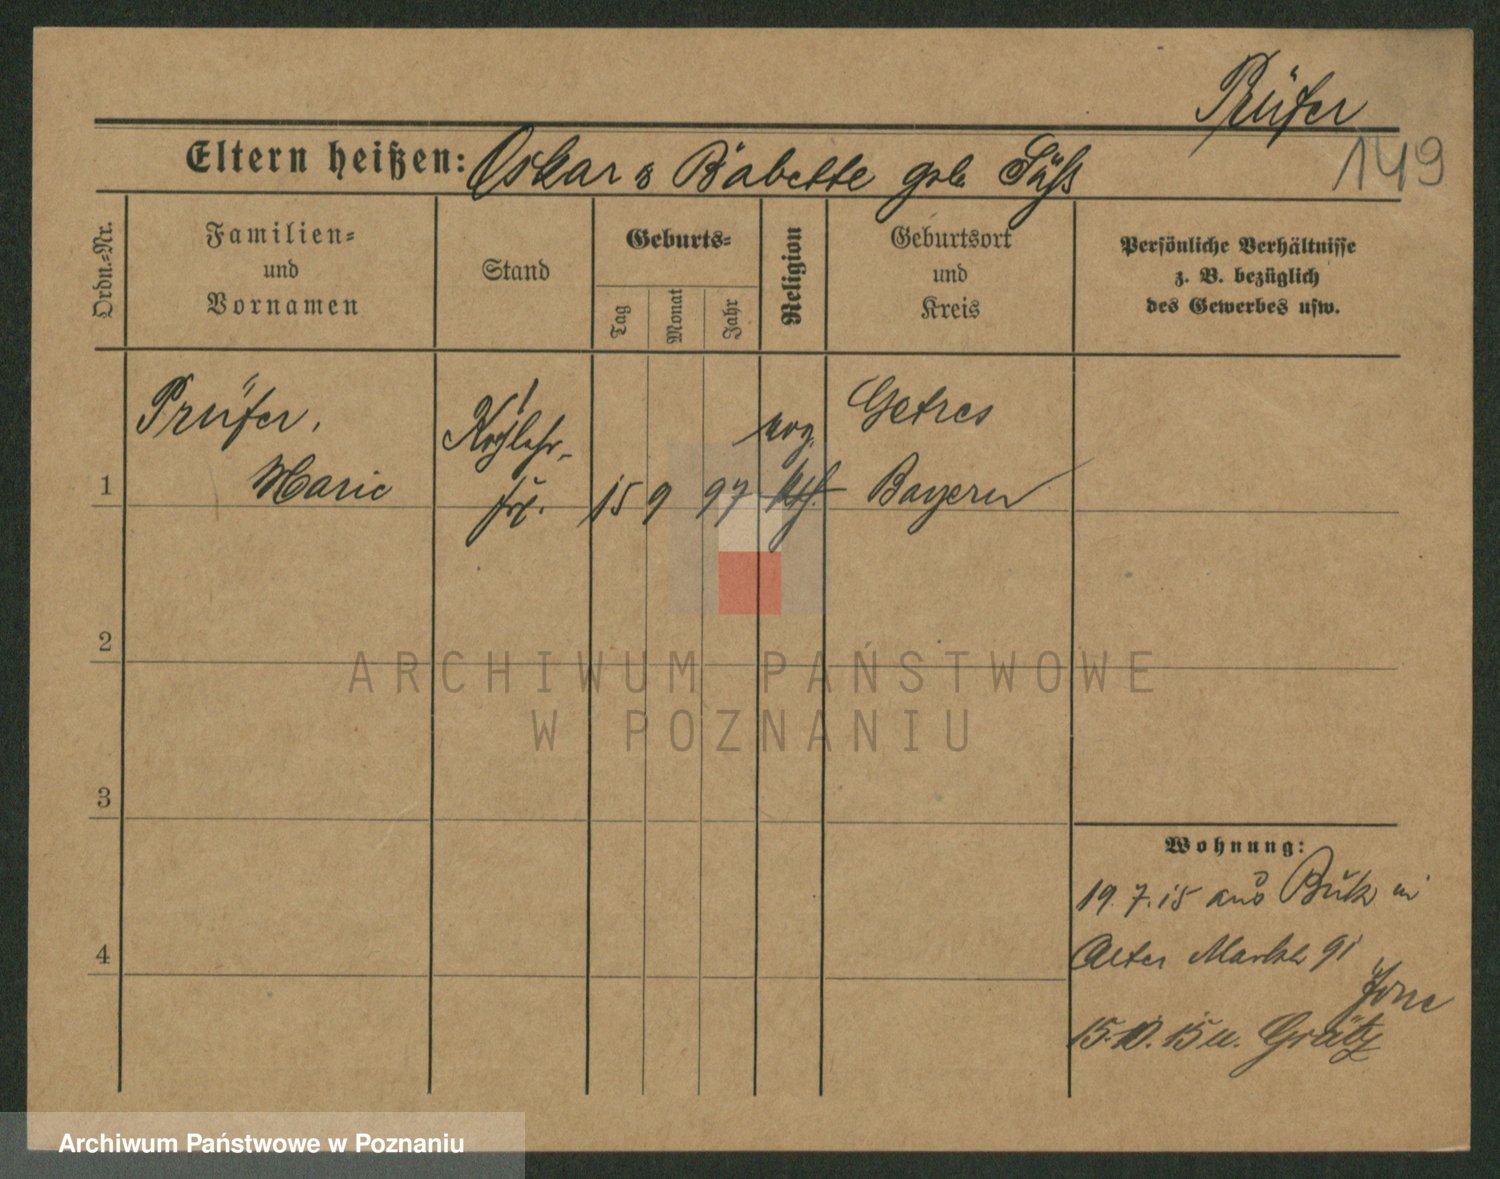 Prüfer
149
Eltern heißen: Oskar & Babette geb. Süß
Ordn.-Nr.
Familien-
und
Vornamen
Stand
Geburts-
Tag
Monat
Jahr
Religion
Geburtsort
und
Kreis
Persönliche Verhältnisse
z. B. bezüglich
des Gewerbes usw.
Prüfer,
Marie
15 9 97
evg.
kth.
Bayern
1
2
3
4
Wohnung:
19.7.15 aus Buk in
Alter Markt 91
15.10.15 n. Grätz
ARCHIWUM PAŃSTWOWE
W POZNANIU
Archiwum Państwowe w Poznaniu